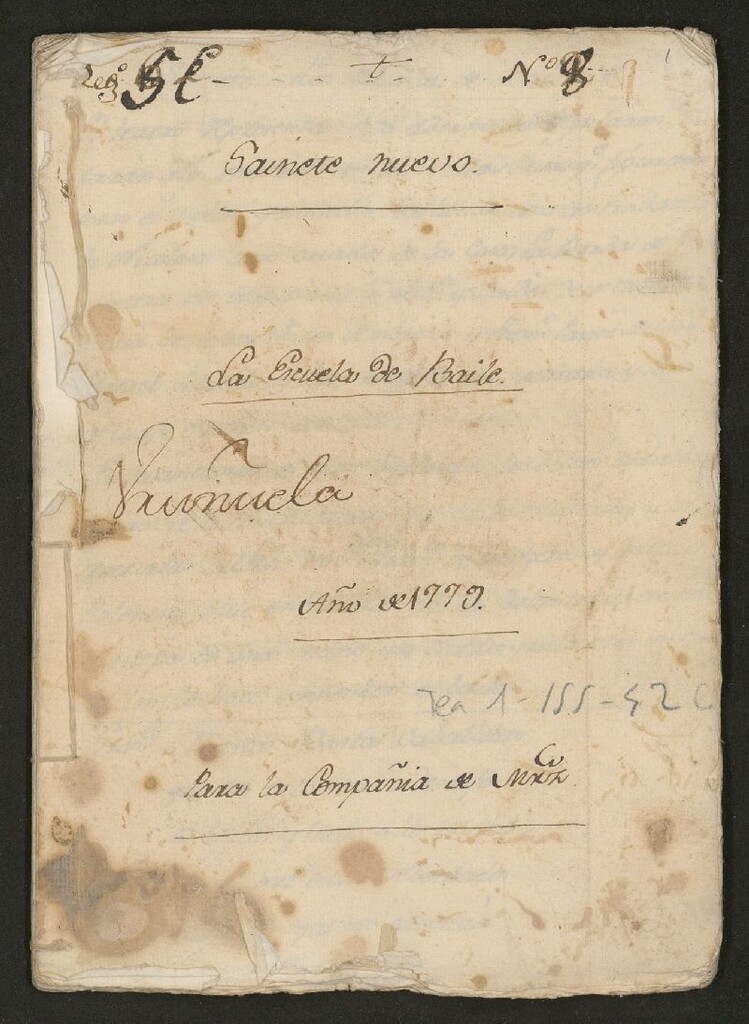 Leg.º 5E - - - - - t - Nº 8
Sainete nuevo.
La Escuela de Baile.
Vruñuela
Año de 1779.
Tea 1-155-42 C
Para la Compañia de